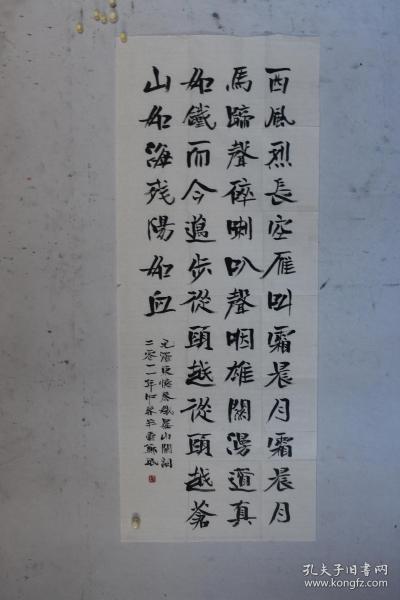 西風烈長空雁叫霜晨月霜晨月
馬蹄聲碎喇叭聲咽雄關漫道真
如鐵而今邁步從頭越從頭越蒼
山如海残陽如血
毛澤東憶秦娥婁山關詞
二零一一年
孔夫子旧书网
www.kongfz.com